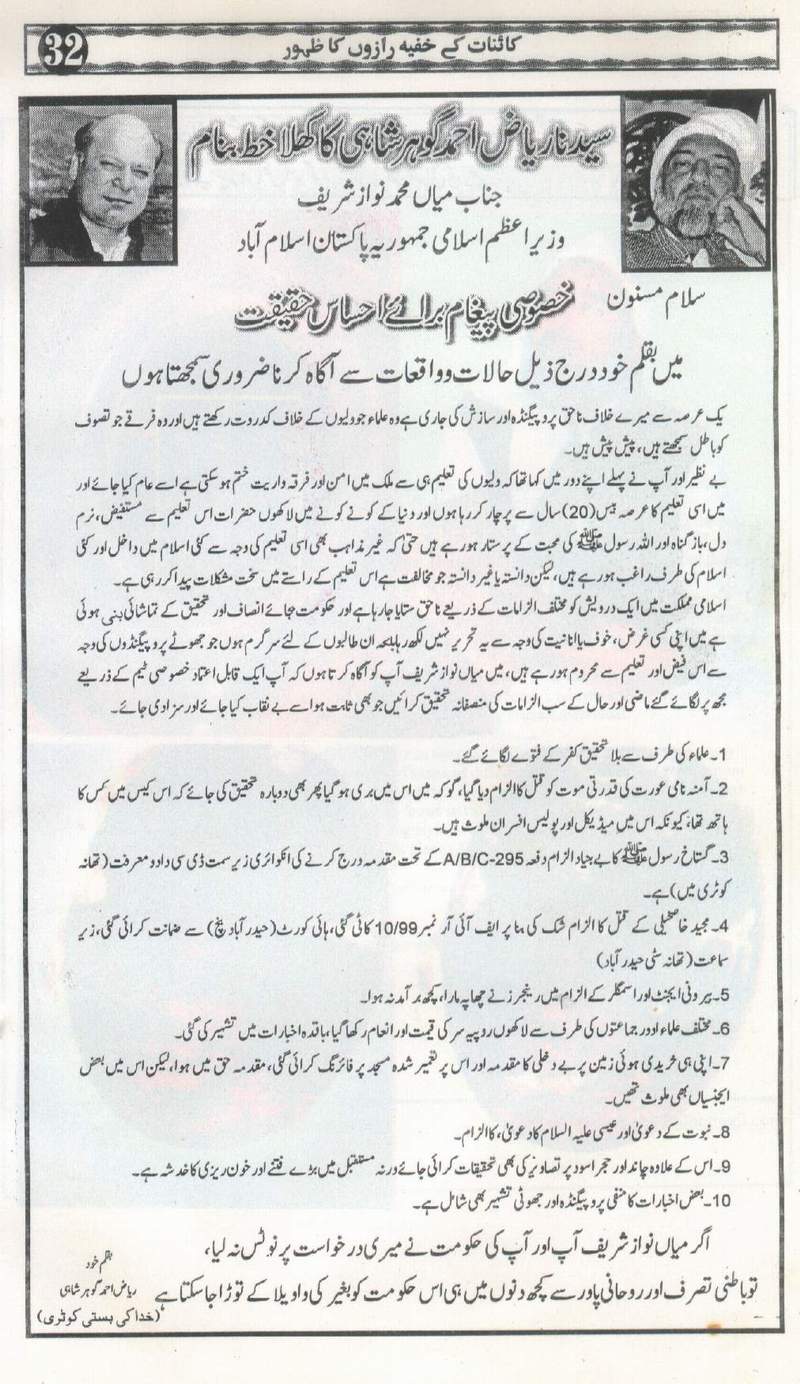 32
کائنات کے خفیہ رازوں کا ظہور
سیدنا ریاض احمد گوھر شاہی کا کھلا خط بنام
جناب میاں محمد نواز شریف
وزیر اعظم اسلامی جمہوریہ پاکستان اسلام آباد
سلام مسنون
خصوصی پیغام برائے احساس حقیقت
میں بقلم خود درج ذیل حالات و واقعات سے آگاہ کرنا ضروری سمجھتا ہوں
یک عرصہ سے میرے خلاف ناحق پروپیگنڈہ اور سازش کی جاری ہے وہ علماء جو ولیوں کے خلاف کدورت رکھتے ہیں اور وہ فرقے جو تصوف
کو باطل سمجھتے ہیں، پیش پیش ہیں۔
بے نظیر اور آپ نے پہلے اپنے دور میں کہا تھا کہ ولیوں کی تعلیم ہی سے ملک میں امن اور فرقہ واریت ختم ہو سکتی ہے اسے عام کیا جائے اور
میں اسی تعلیم کا عرصہ بیس (20) سال سے پرچار کر رہا ہوں اور دنیا کے کونے کونے میں لاکھوں حضرات اس تعلیم سے مستفیض، نرم
دل، باز گناہ اور اللہ رسول ﷺ کی محبت کے پرستار ہو رہے ہیں حتیٰ کہ غیر مذاہب بھی اسی تعلیم کی وجہ سے کئی اسلام میں داخل اور کئی
اسلام کی طرف راغب ہو رہے ہیں، لیکن دانستہ یا غیر دانستہ جو مخالفت ہے اس تعلیم کے راستے میں سخت مشکلات پیدا کر رہی ہے۔
اسلامی مملکت میں ایک درویش کو مختلف الزامات کے ذریعے ناحق ستایا جا رہا ہے اور حکومت بجائے انصاف اور تحقیق کے تماشائی بنی ہوئی
ہے میں اپنی کسی غرض، خوف یا انانیت کی وجہ سے یہ تحریر نہیں لکھ رہا بلکہ ان طالبوں کے لئے سرگرم ہوں جو جھوٹے پروپیگنڈوں کی وجہ
سے اس فیض اور تعلیم سے محروم ہو رہے ہیں، میں میاں نواز شریف آپ کو آگاہ کرتا ہوں کہ آپ ایک قابل اعتماد خصوصی ٹیم کے ذریعے
مجھ پر لگائے گئے ماضی اور حال کے سب الزامات کی منصفانہ تحقیق کرائیں جو بھی ثابت ہوا سے بے نقاب کیا جائے اور سزا دی جائے۔
1۔ علماء کی طرف سے بلا تحقیق کفر کے فتوے لگائے گئے۔
2۔ آمنہ نامی عورت کی قدرتی موت کو قتل کا الزام دیا گیا، گو کہ میں اس میں بری ہو گیا پھر بھی دوبارہ تحقیق کی جائے کہ اس کیس میں کس کا
ہاتھ تھا، کیونکہ اس میں میڈیکل اور پولیس افسران ملوث ہیں۔
3۔ گستاخ رسول ﷺ کا بے بنیاد الزام دفعہ 295-A/B/C کے تحت مقدمہ درج کرنے کی انکوائری زیر سمت ڈی سی دادو معرفت (تھانہ
کوٹری میں) ہے۔
4۔ مجید خاصخیلی کے قتل کا الزام شک کی بنا پر ایف آئی آر نمبر 10/99 کاٹی گئی، ہائی کورٹ (حیدر آباد بنچ) سے ضمانت کرائی گئی، زیر
سماعت (تھانہ سٹی حیدر آباد)
5۔ بیرونی ایجنٹ اور اسمگلر کے الزام میں رینجرز نے چھاپہ مارا، کچھ برآمد نہ ہوا۔
6۔ مختلف علماء اور جماعتوں کی طرف سے لاکھوں روپیہ سر کی قیمت اور انعام رکھا گیا، باقدہ اخبارات میں تشہیر کی گئی۔
7۔ اپنی ہی خریدی ہوئی زمین پر بے دخلی کا مقدمہ اور اس پر تعمیر شدہ مسجد پر فائرنگ کرائی گئی، مقدمہ حق میں ہوا، لیکن اس میں بعض
ایجنسیاں بھی ملوث تھیں۔
8۔ نبوت کے دعویٰ اور عیسیٰ علیہ السلام کا دعویٰ، کا الزام۔
9۔ اس کے علاوہ چاند اور حجر اسود پر تصاویر کی بھی تحقیقات کرائی جائے ورنہ مستقبل میں بڑے فتنے اور خون ریزی کا خدشہ ہے۔
10۔ بعض اخبارات کا منفی پروپیگنڈہ اور جھوٹی تشہیر بھی شامل ہے۔
اگر میاں نواز شریف آپ اور آپ کی حکومت نے میری درخواست پر نوٹس نہ لیا،
تو باطنی تصرف اور روحانی پاور سے کچھ دنوں میں ہی اس حکومت کو بغیر کی واویلا کے توڑا جا سکتا ہے
بقلم خود
ریاض احمد گوھر شاہی
(خدا کی بستی کوٹری)